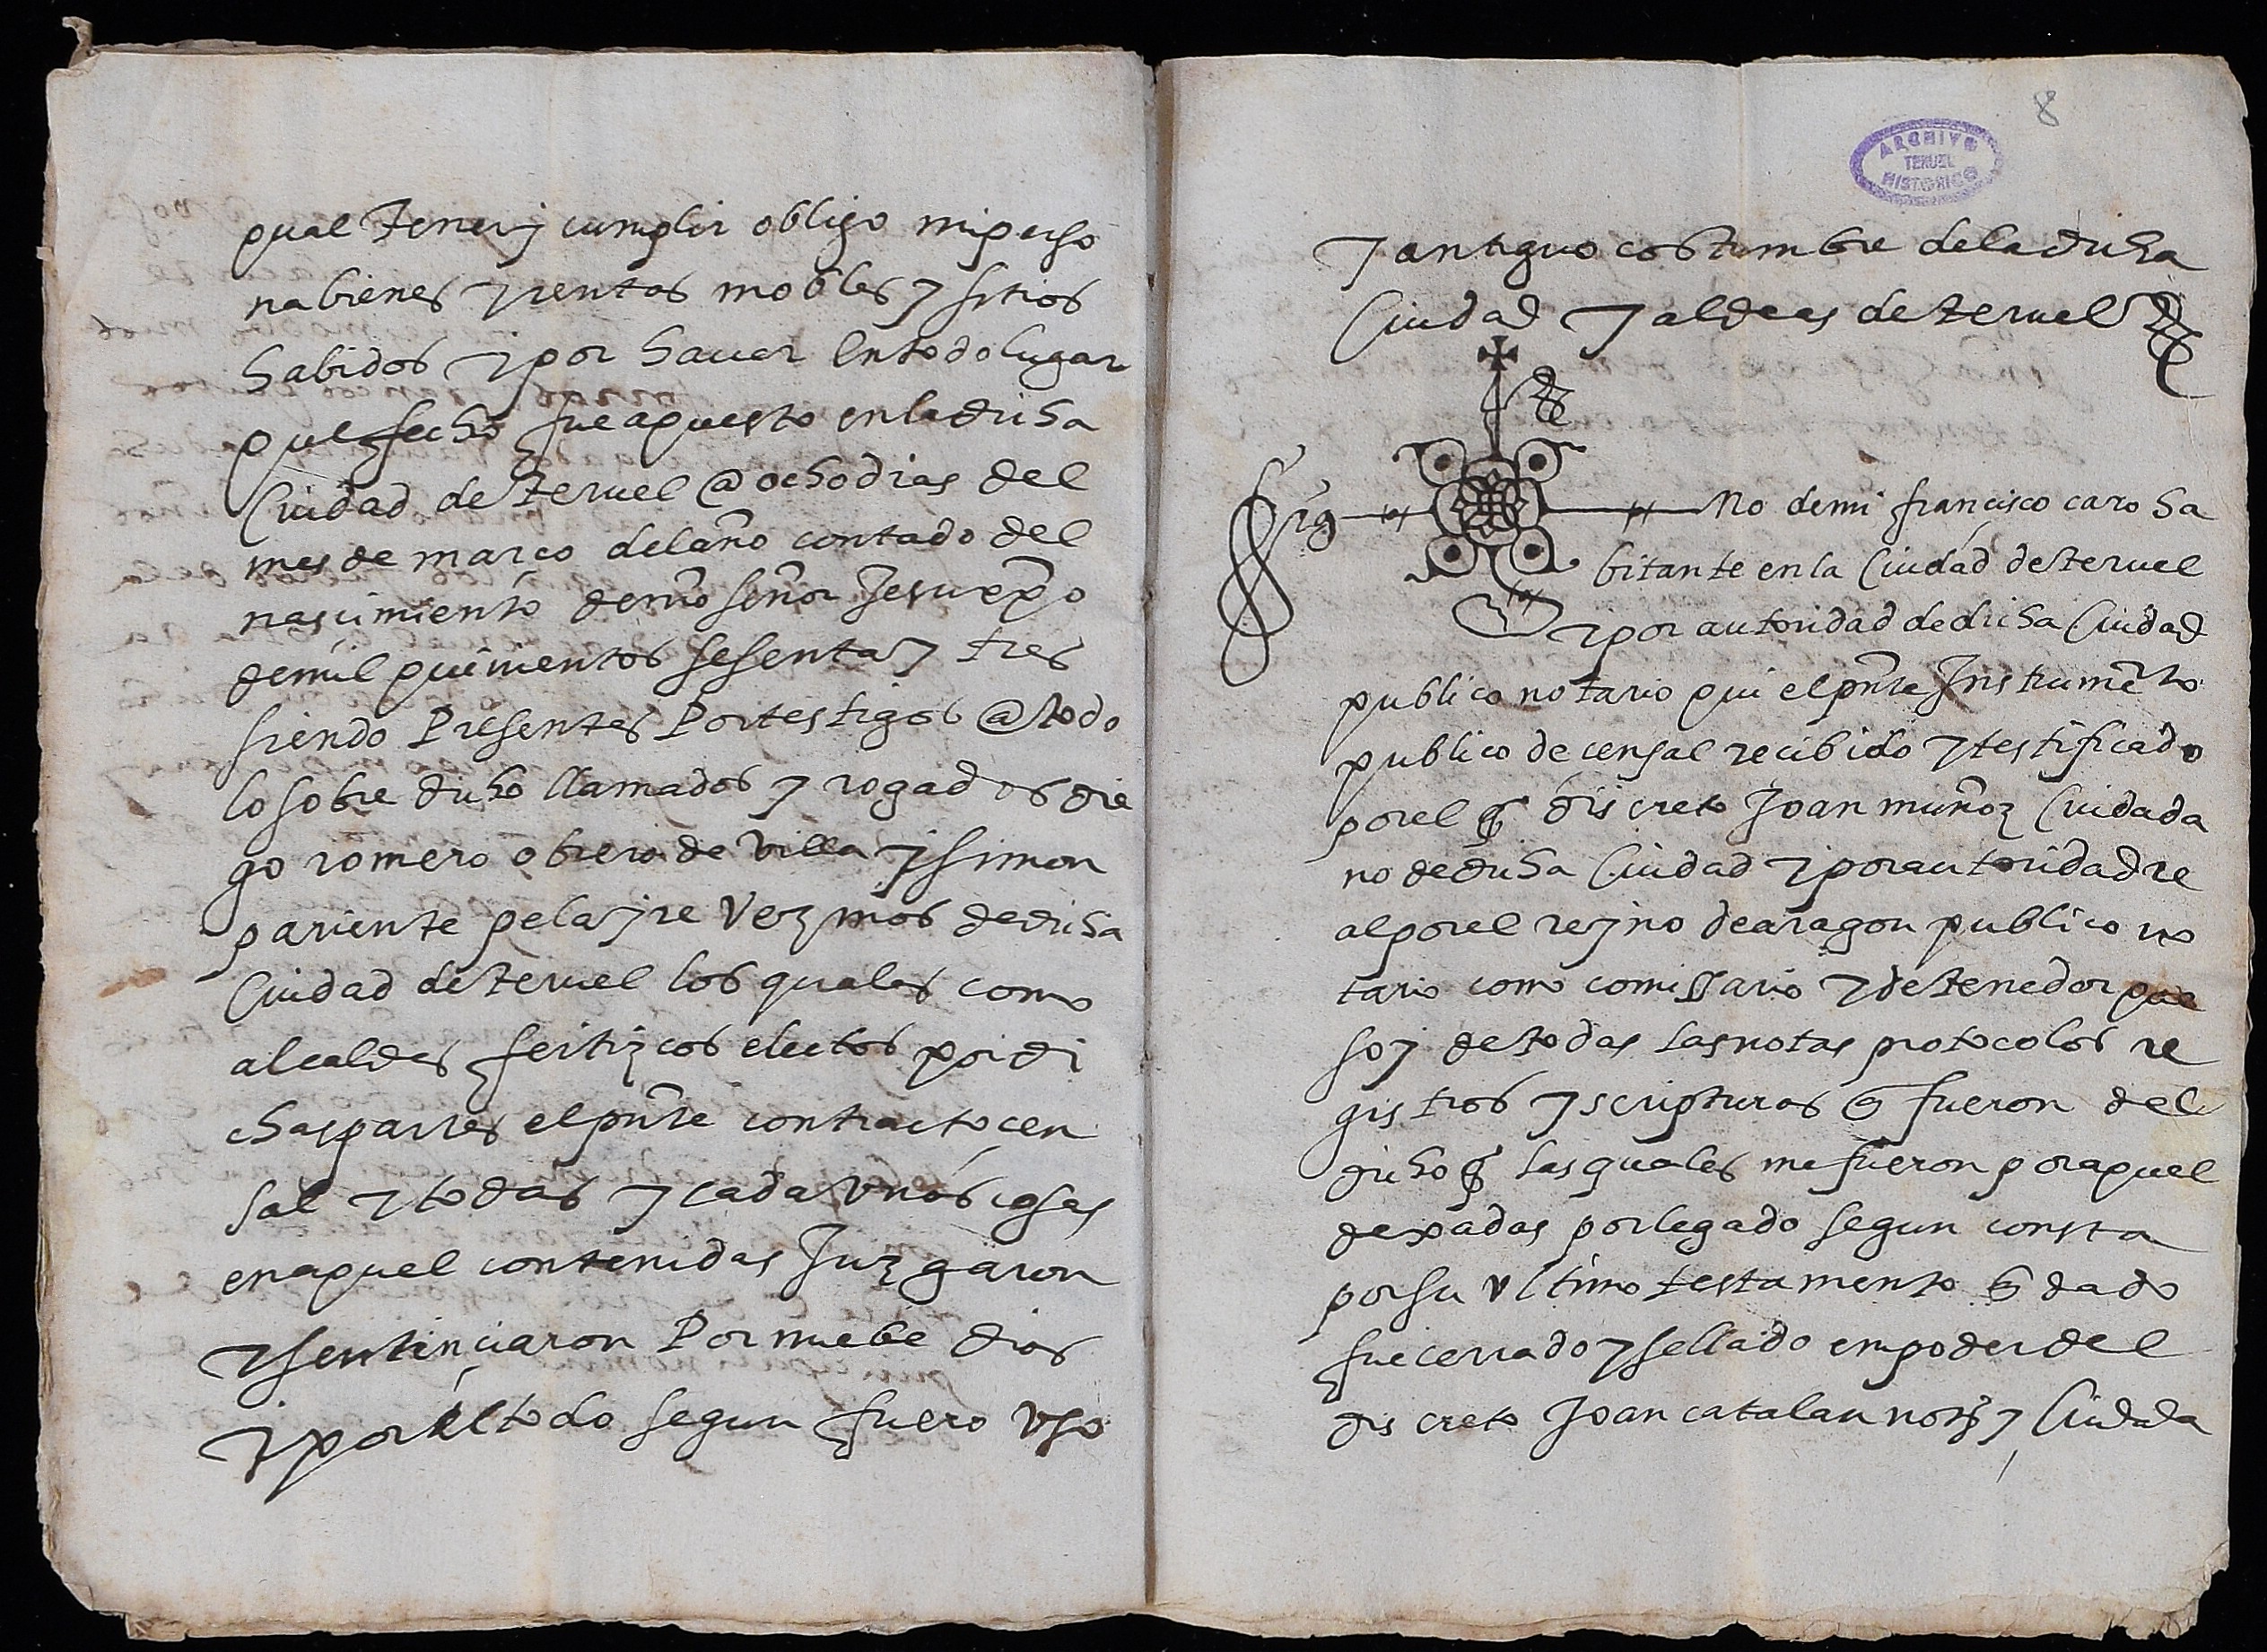 qual tener y cumplir obligo mi perso
na bienes y rentas mobles y sitios
habidos y por hauer en todo lugar
quel fecho fue aquesto en la dicha
Ciudad de teruel @ ocho dias del
mes de março del año contado del
nascimiento de nr̃o señor Jesuxp̃o
de mil quinientos sesenta y tres
siendo Presentes Por testigos @ todo
lo sobre dicho llamados y rogados die
go romero obrero de villa y simon
pariente pelayre vezinos de dicha
Ciudad de teruel los quales como
alcaldes feitizcos electos por di
chas partes el pn̄te contracto cen
sal y todas y cada vnas cosas
en aquel contenidas Juzgaron
y sentenciaron Por muebe dias
y por el todo segun fuero vso
8
ARCHIVO
TERUEL
HISTORICO
y antiguo costumbre de la dicha
Ciudad y aldeas de teruel
Sig no de mi francisco caro ha
bitante en la Ciudad de teruel
y por autoridad de dicha Ciudad
publico notario qui el pn̄te Instrumēto
publico de censal recibido y testificado
por el q̄ discreto Joan muñoz Ciudada
no de dicha Ciudad y por autoridad re
al por el reyno de aragon publico no
tario como comissario y detenedor que
soy de todas las notas protocolos re
gistros y scripturas q̄ fueron del
dicho q̄ las quales me fueron por aquel
dexadas por legado segun consta
por su vltimo testamento q̄ dado
fue cerrado y sellado en poder del
discreto Joan catalan notº y Ciudada